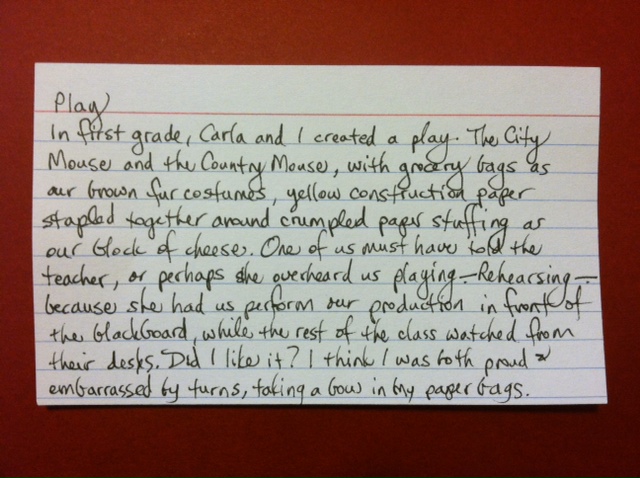 Play
In first grade, Carla and I created a play. The City
Mouse and the Country Mouse, with grocery bags as
our brown fur costumes, yellow construction paper
stapled together around crumpled paper stuffing as
our block of cheese. One of us must have told the
teacher, or perhaps she overheard us playing—Rehearsing—
because she had us perform our production in front of
the blackboard, while the rest of the class watched from
their desks. Did I like it? I think I was both proud &
embarrassed by turns, taking a bow in my paper bags.